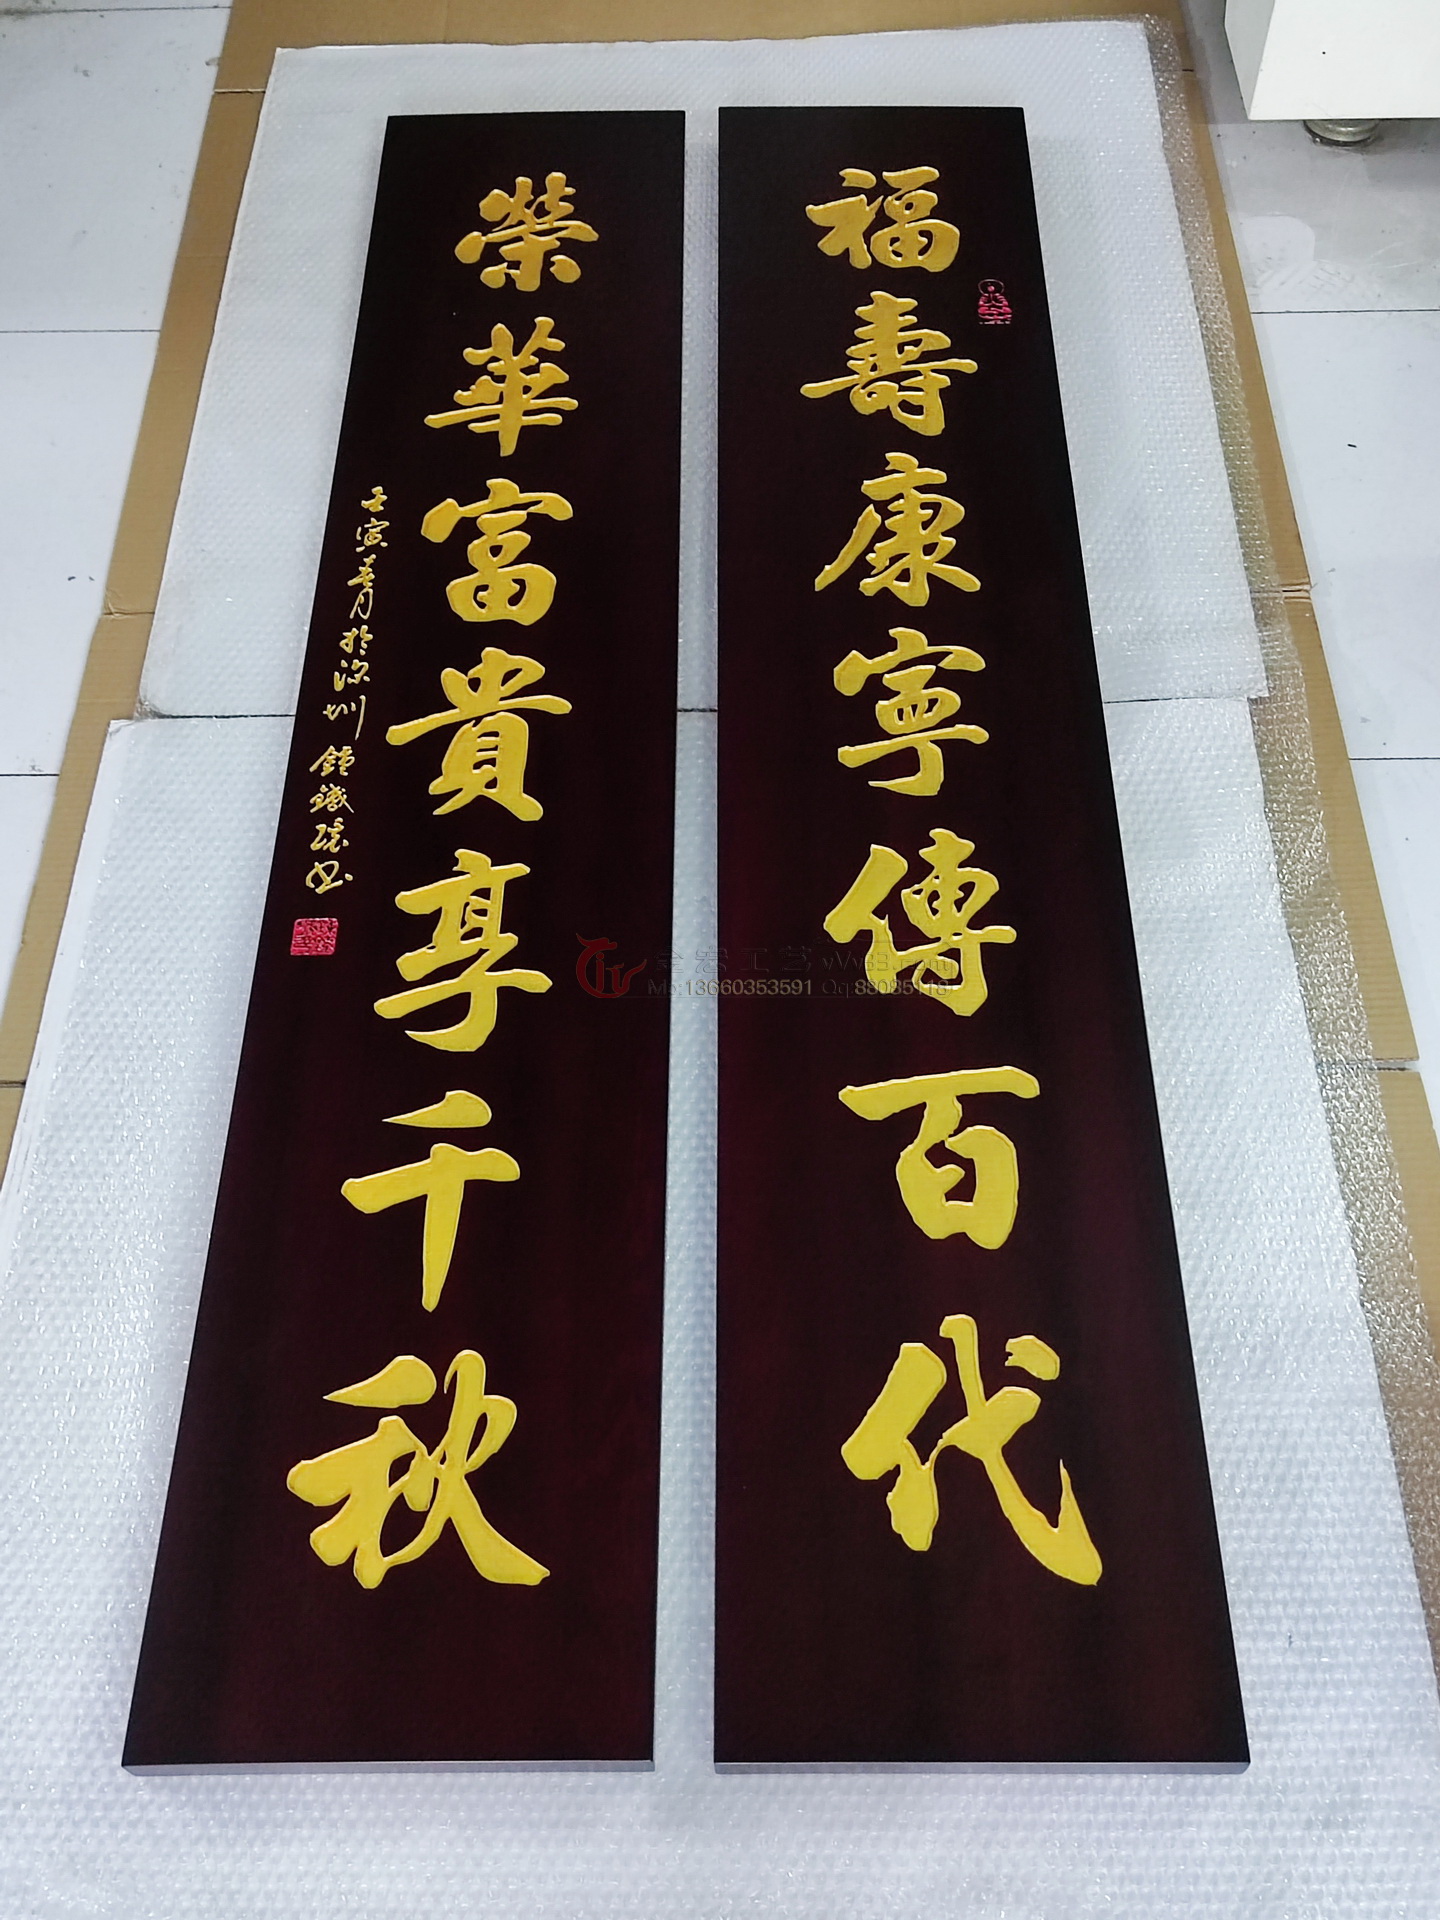 福壽康寧傳百代
榮華富貴享千秋
壬寅春月於深圳
鐘鐵
书
Mo:13660353591 Qq:88085118